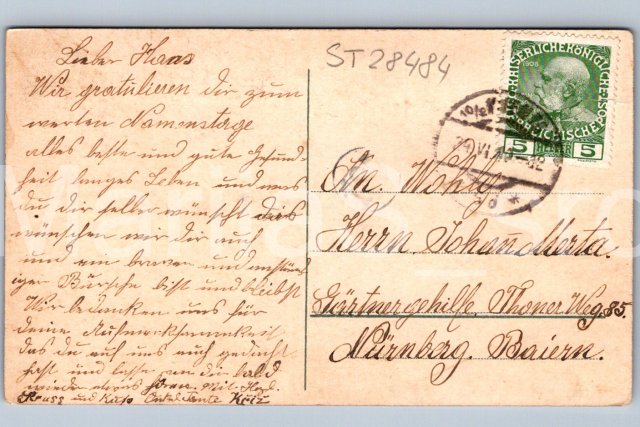 Lieber Hans
Wir gratulieren dir zum
werten Namenstage
alles beste und gute Gesund-
heit langes Leben und was
du dir selber wünscht dies
wünschen wir dir auch
und ein braver und anständ
iger Bursche bist und bleibst
Wir bedanken uns für
deine Aufmerksamkeit
das du auf uns auch gedacht
hast und bitte dich bald
wieder etwas Mit Herzl.
Gruss und Kuss Onkel Tante
ST 28484
KAISERLICHE KÖNIGLICHE ÖSTERREICHISCHE POST
1908
5 HELLER 5
VI
12
An. Wohlg
Herrn Johann Merta.
Gärtnergehilfe. Thoner Weg 85.
Nürnberg. Baiern.